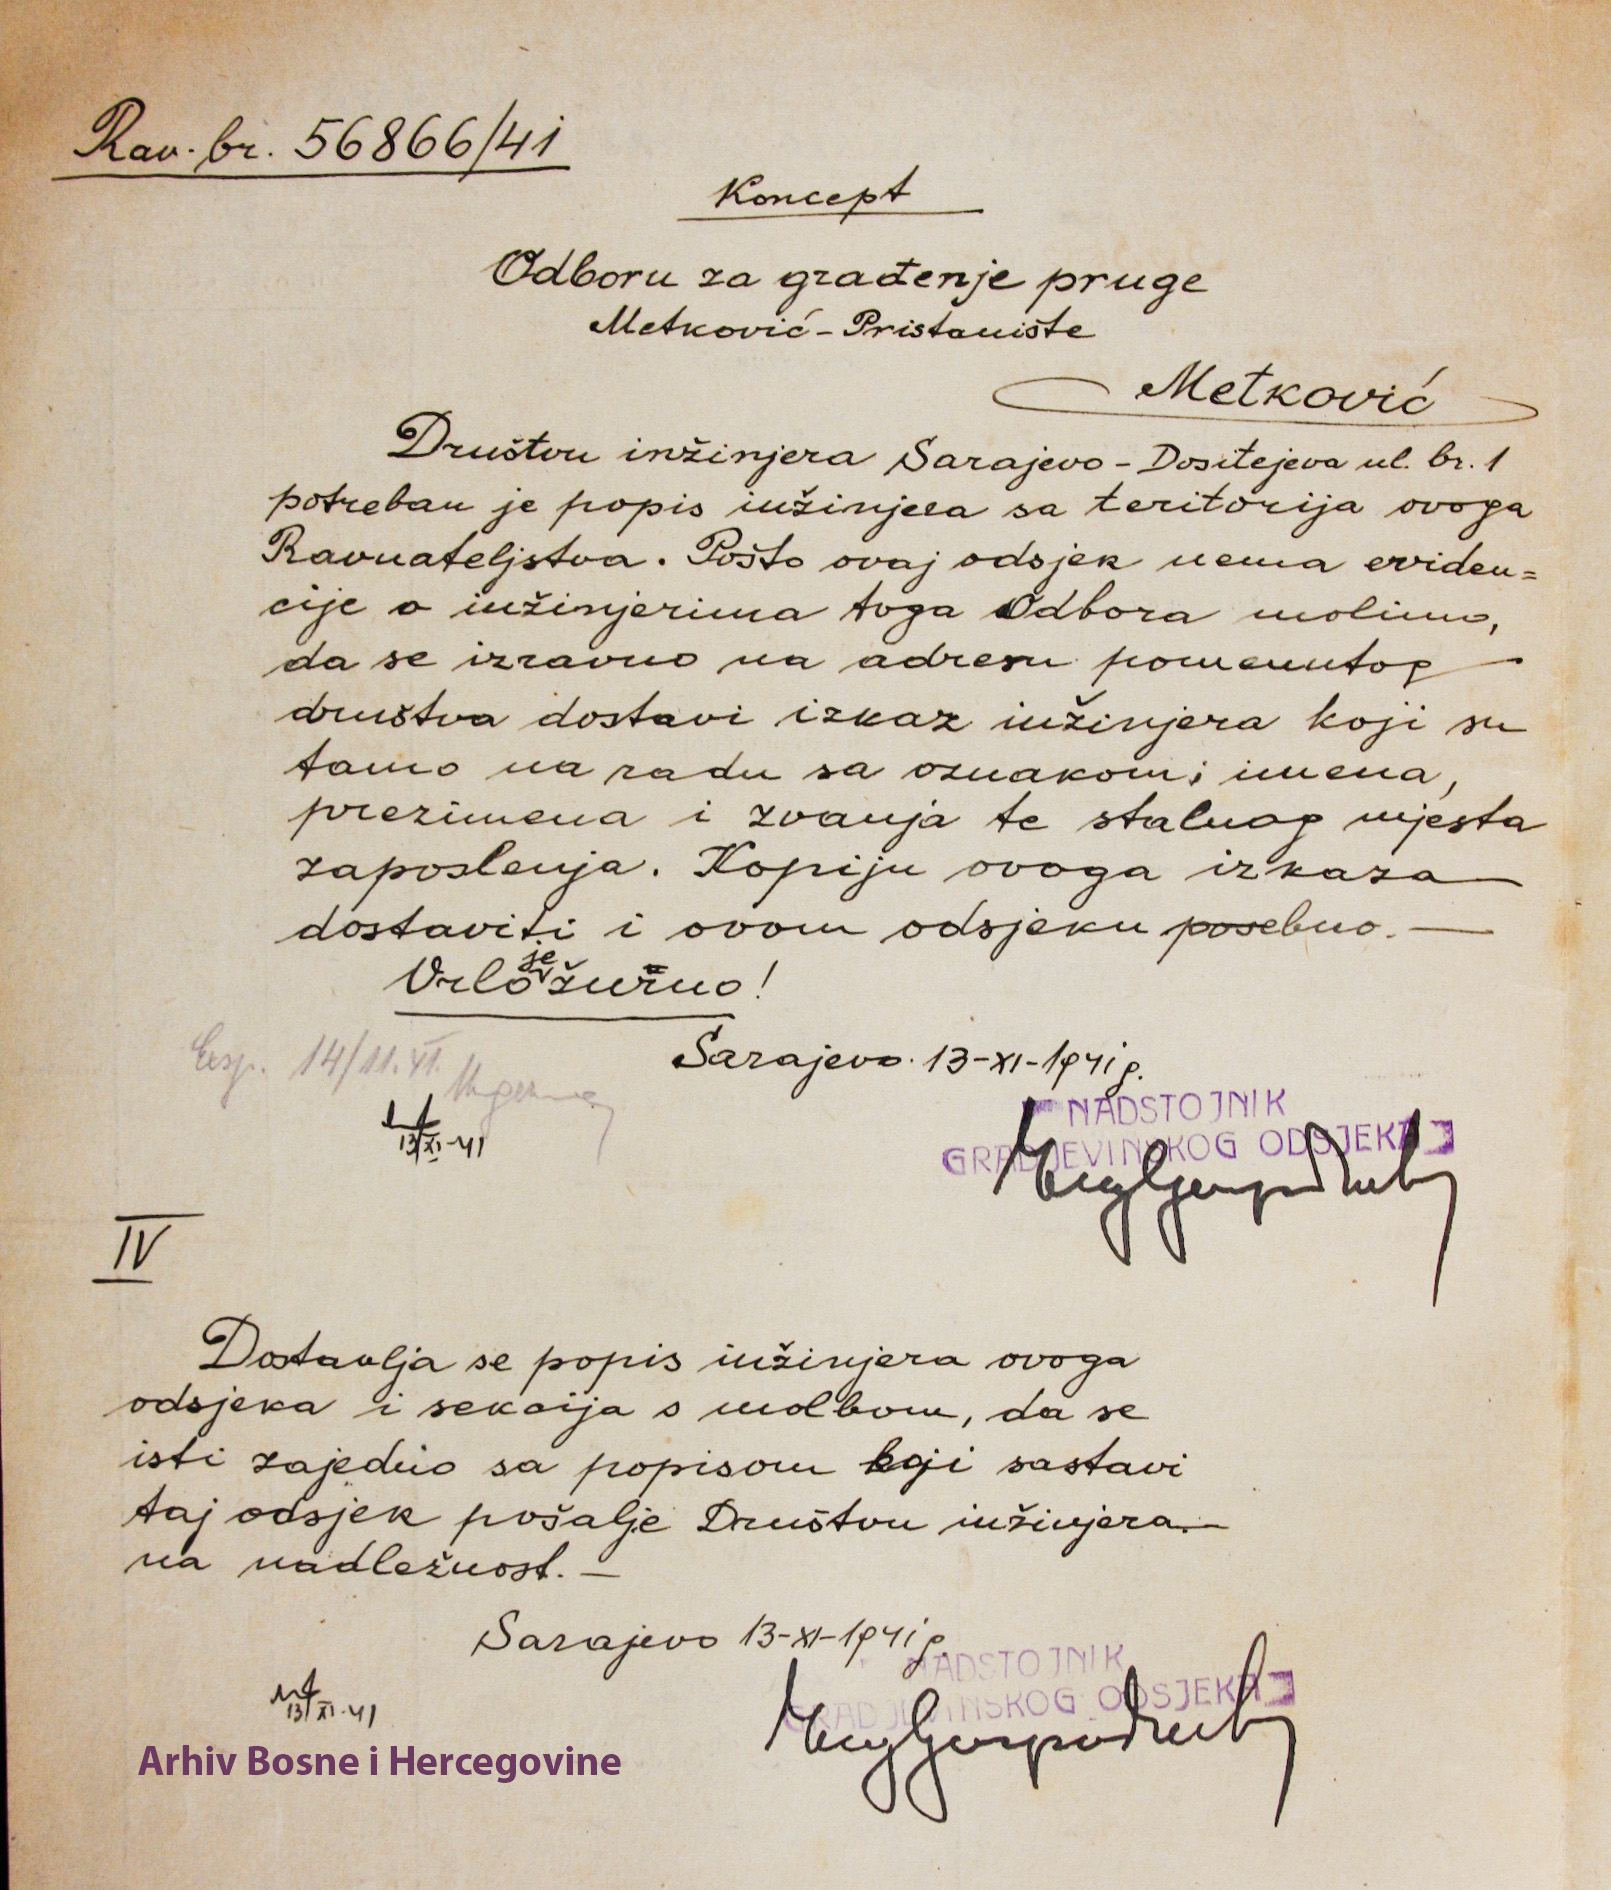 Rav. br. 56866/41
Koncept
Odboru za građenje pruge
Metković - Pristanište
Metković
Društvu inžinjera Sarajevo - Dositejeva ul. br. 1
potreban je popis inžinjera sa teritorija ovoga
Ravnateljstva. Pošto ovaj odsjek nema eviden=
cije o inžinjerima toga Odbora molimo,
da se izravno na adresu pomenutog
društva dostavi izkaz inžinjera koji su
tamo na radu sa oznakom: imena,
prezimena i zvanja te stalnog mjesta
zaposlenja. Kopiju ovoga izkaza
dostaviti i ovom odsjeku posebno. —
Vrlo je žurno!
Sarajevo 13-XI-1941 g.
Exp. 14/11.XI.
13/XI-41
NADSTOJNIK
GRADJEVINSKOG ODSJEKA
IV
Dostavlja se popis inžinjera ovoga
odsjeka i sekcija s molbom, da se
isti zajedno sa popisom koji sastavi
taj odsjek pošalje Društvu inžinjera
na nadležnost. —
Sarajevo 13-XI-1941 g.
NADSTOJNIK
GRADJEVINSKOG ODSJEKA
13/XI-41
Arhiv Bosne i Hercegovine